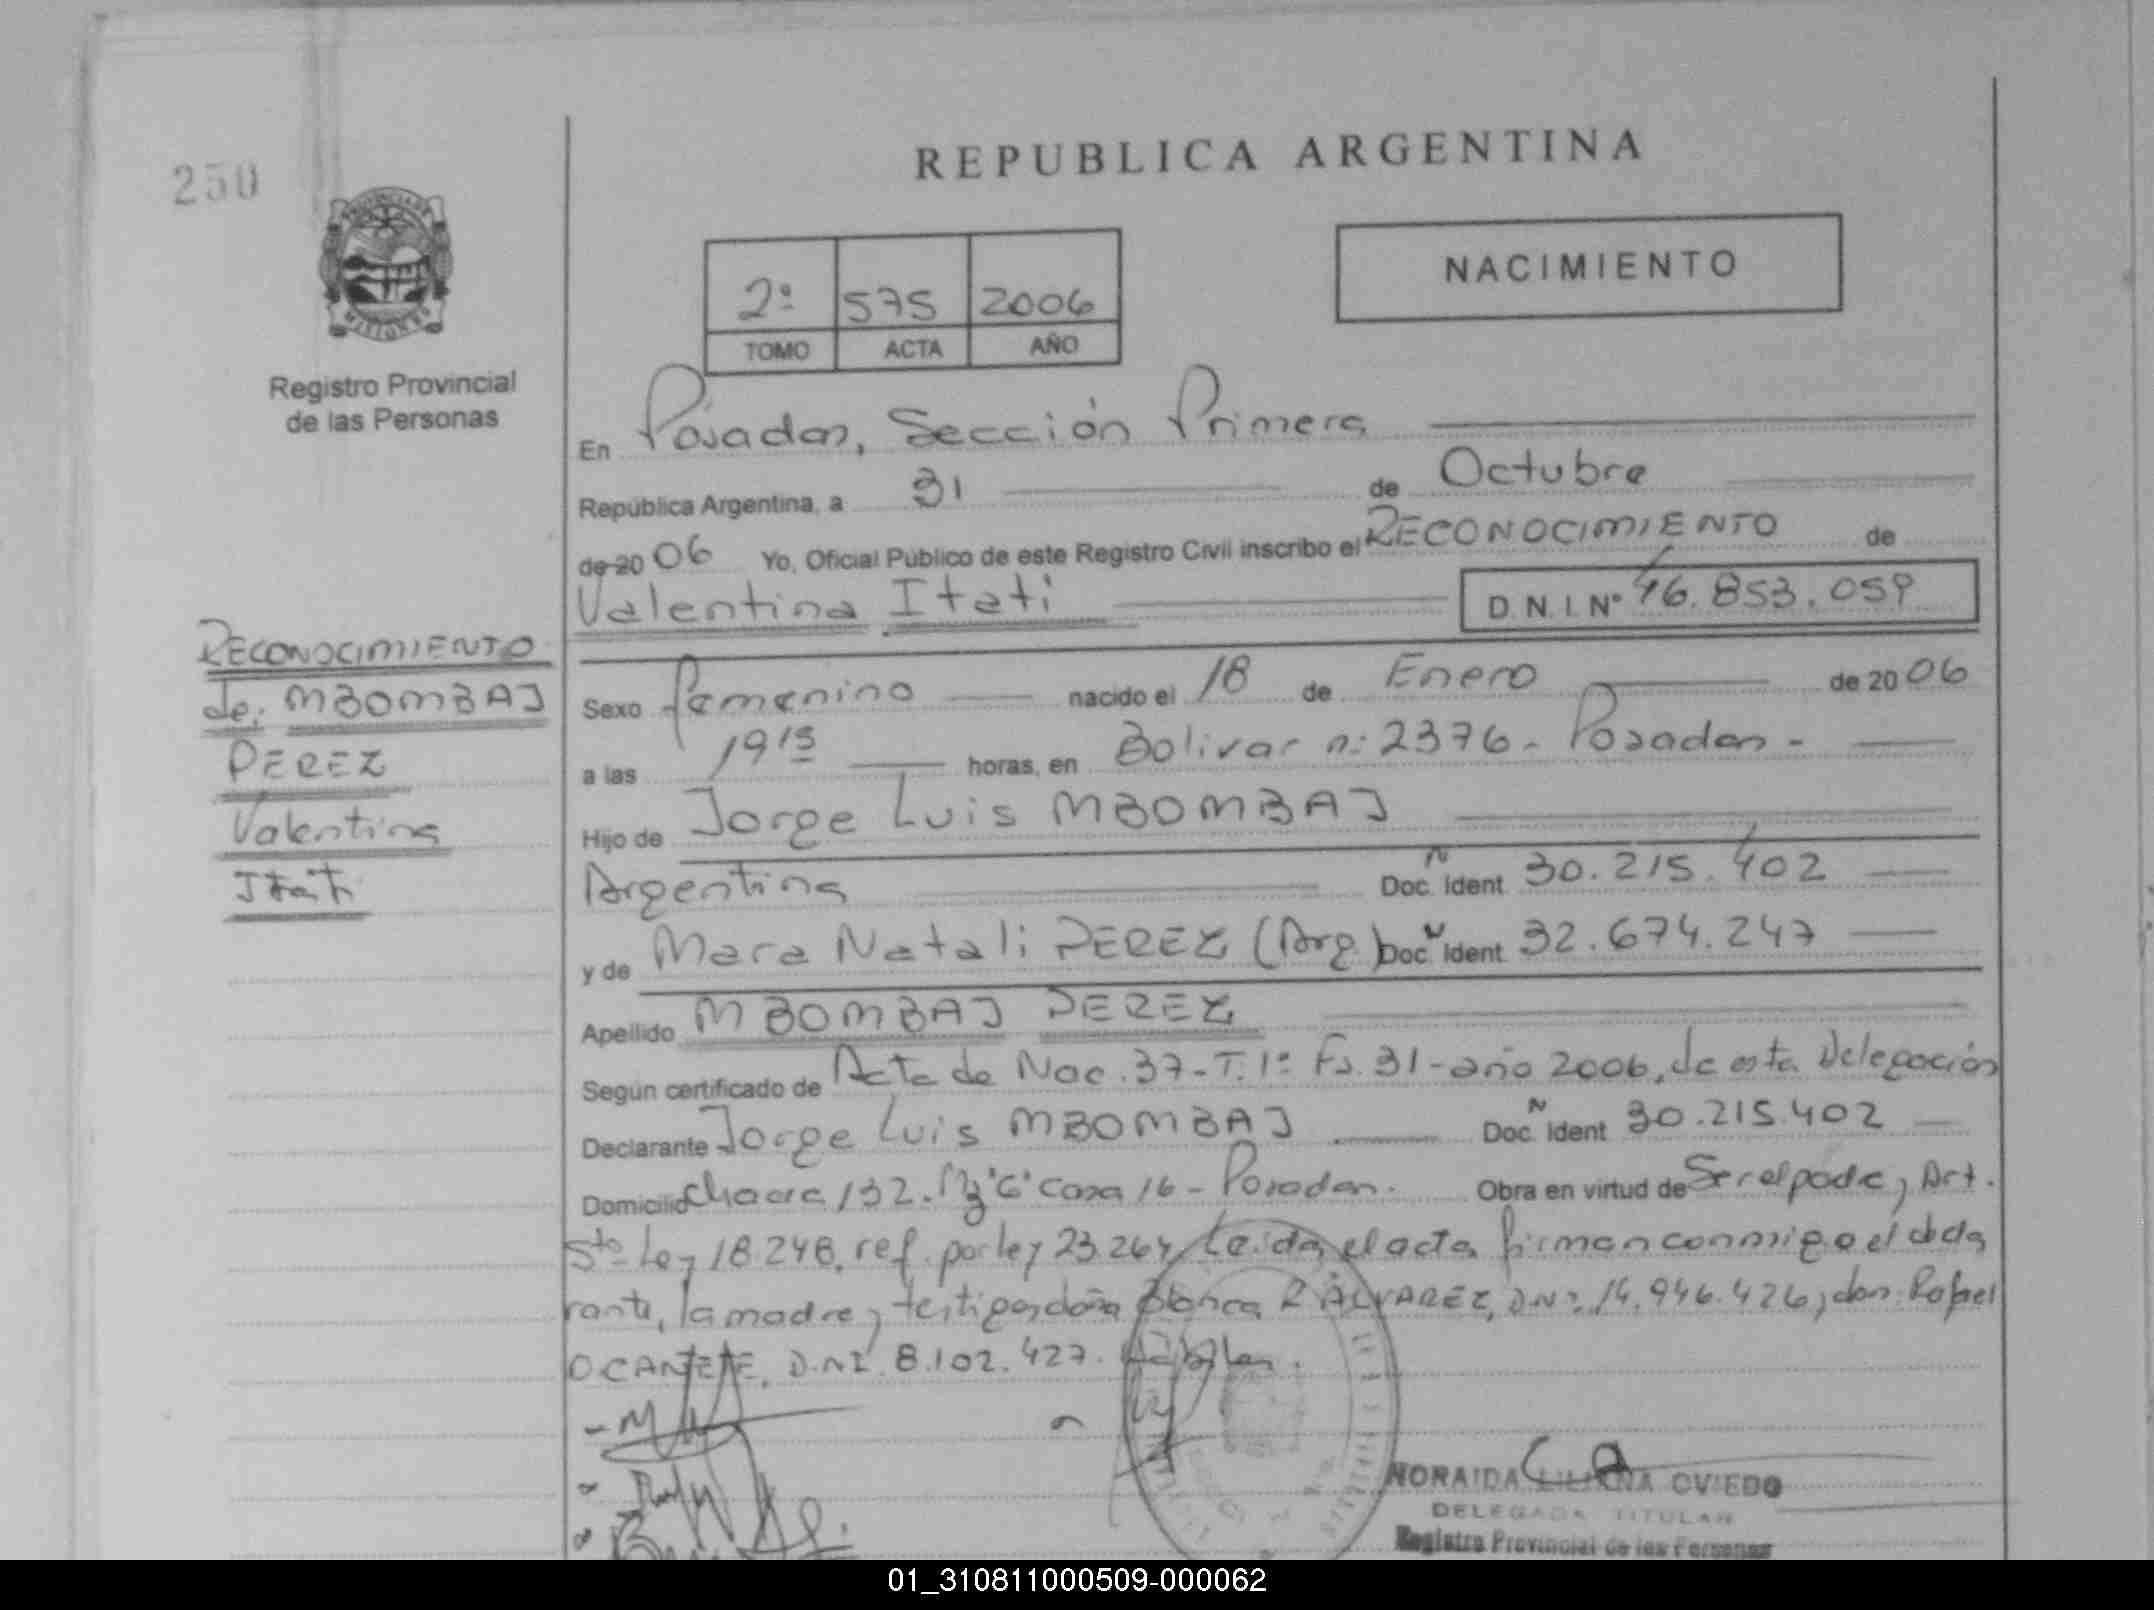 250
REPUBLICA ARGENTINA
NACIMIENTO
2º 575 2006
TOMO ACTA AÑO
MISIONES
Registro Provincial
de las Personas
En Posadas, Sección Primera
República Argentina, a 31 de Octubre
de 20 06 Yo, Oficial Público de este Registro Civil inscribo el RECONOCIMIENTO de
Valentina Itati D.N.I. Nº 46.853.059
RECONOCIMIENTO
de: MBOMBAJ
PEREZ
Valentina
Itati
Sexo femenino nacido el 18 de Enero de 20 06
a las 19 15 horas, en Bolivar n: 2376 - Posadas -
Hijo de Jorge Luis MBOMBAJ
Argentina Doc. Ident. 30.215.402
y de Mara Natali PEREZ (Arg) Doc. Ident. 32.674.247
Apellido MBOMBAJ PEREZ
Según certificado de Acta de Nac. 37-T. 1º Fs. 31-año 2006, de esta Delegación
Declarante Jorge Luis MBOMBAJ Doc. Ident 30.215.402
Domicilio Chacra 132. Mz "G" Casa 16 - Posadas. Obra en virtud de Ser el padre, Art.
5to Ley 18.248, ref. por ley 23.264, Leida el acta firman conmigo el decla
rante, la madre y testigos doña Blanca R ALVAREZ, D.N.I. 14.946.426, don Rafael
OCAMPO D.N.I. 8.102.427.
NORAIDA LILIANA OVIEDO
DELEGADA TITULAR
Registro Provincial de las Personas
01_310811000509-000062